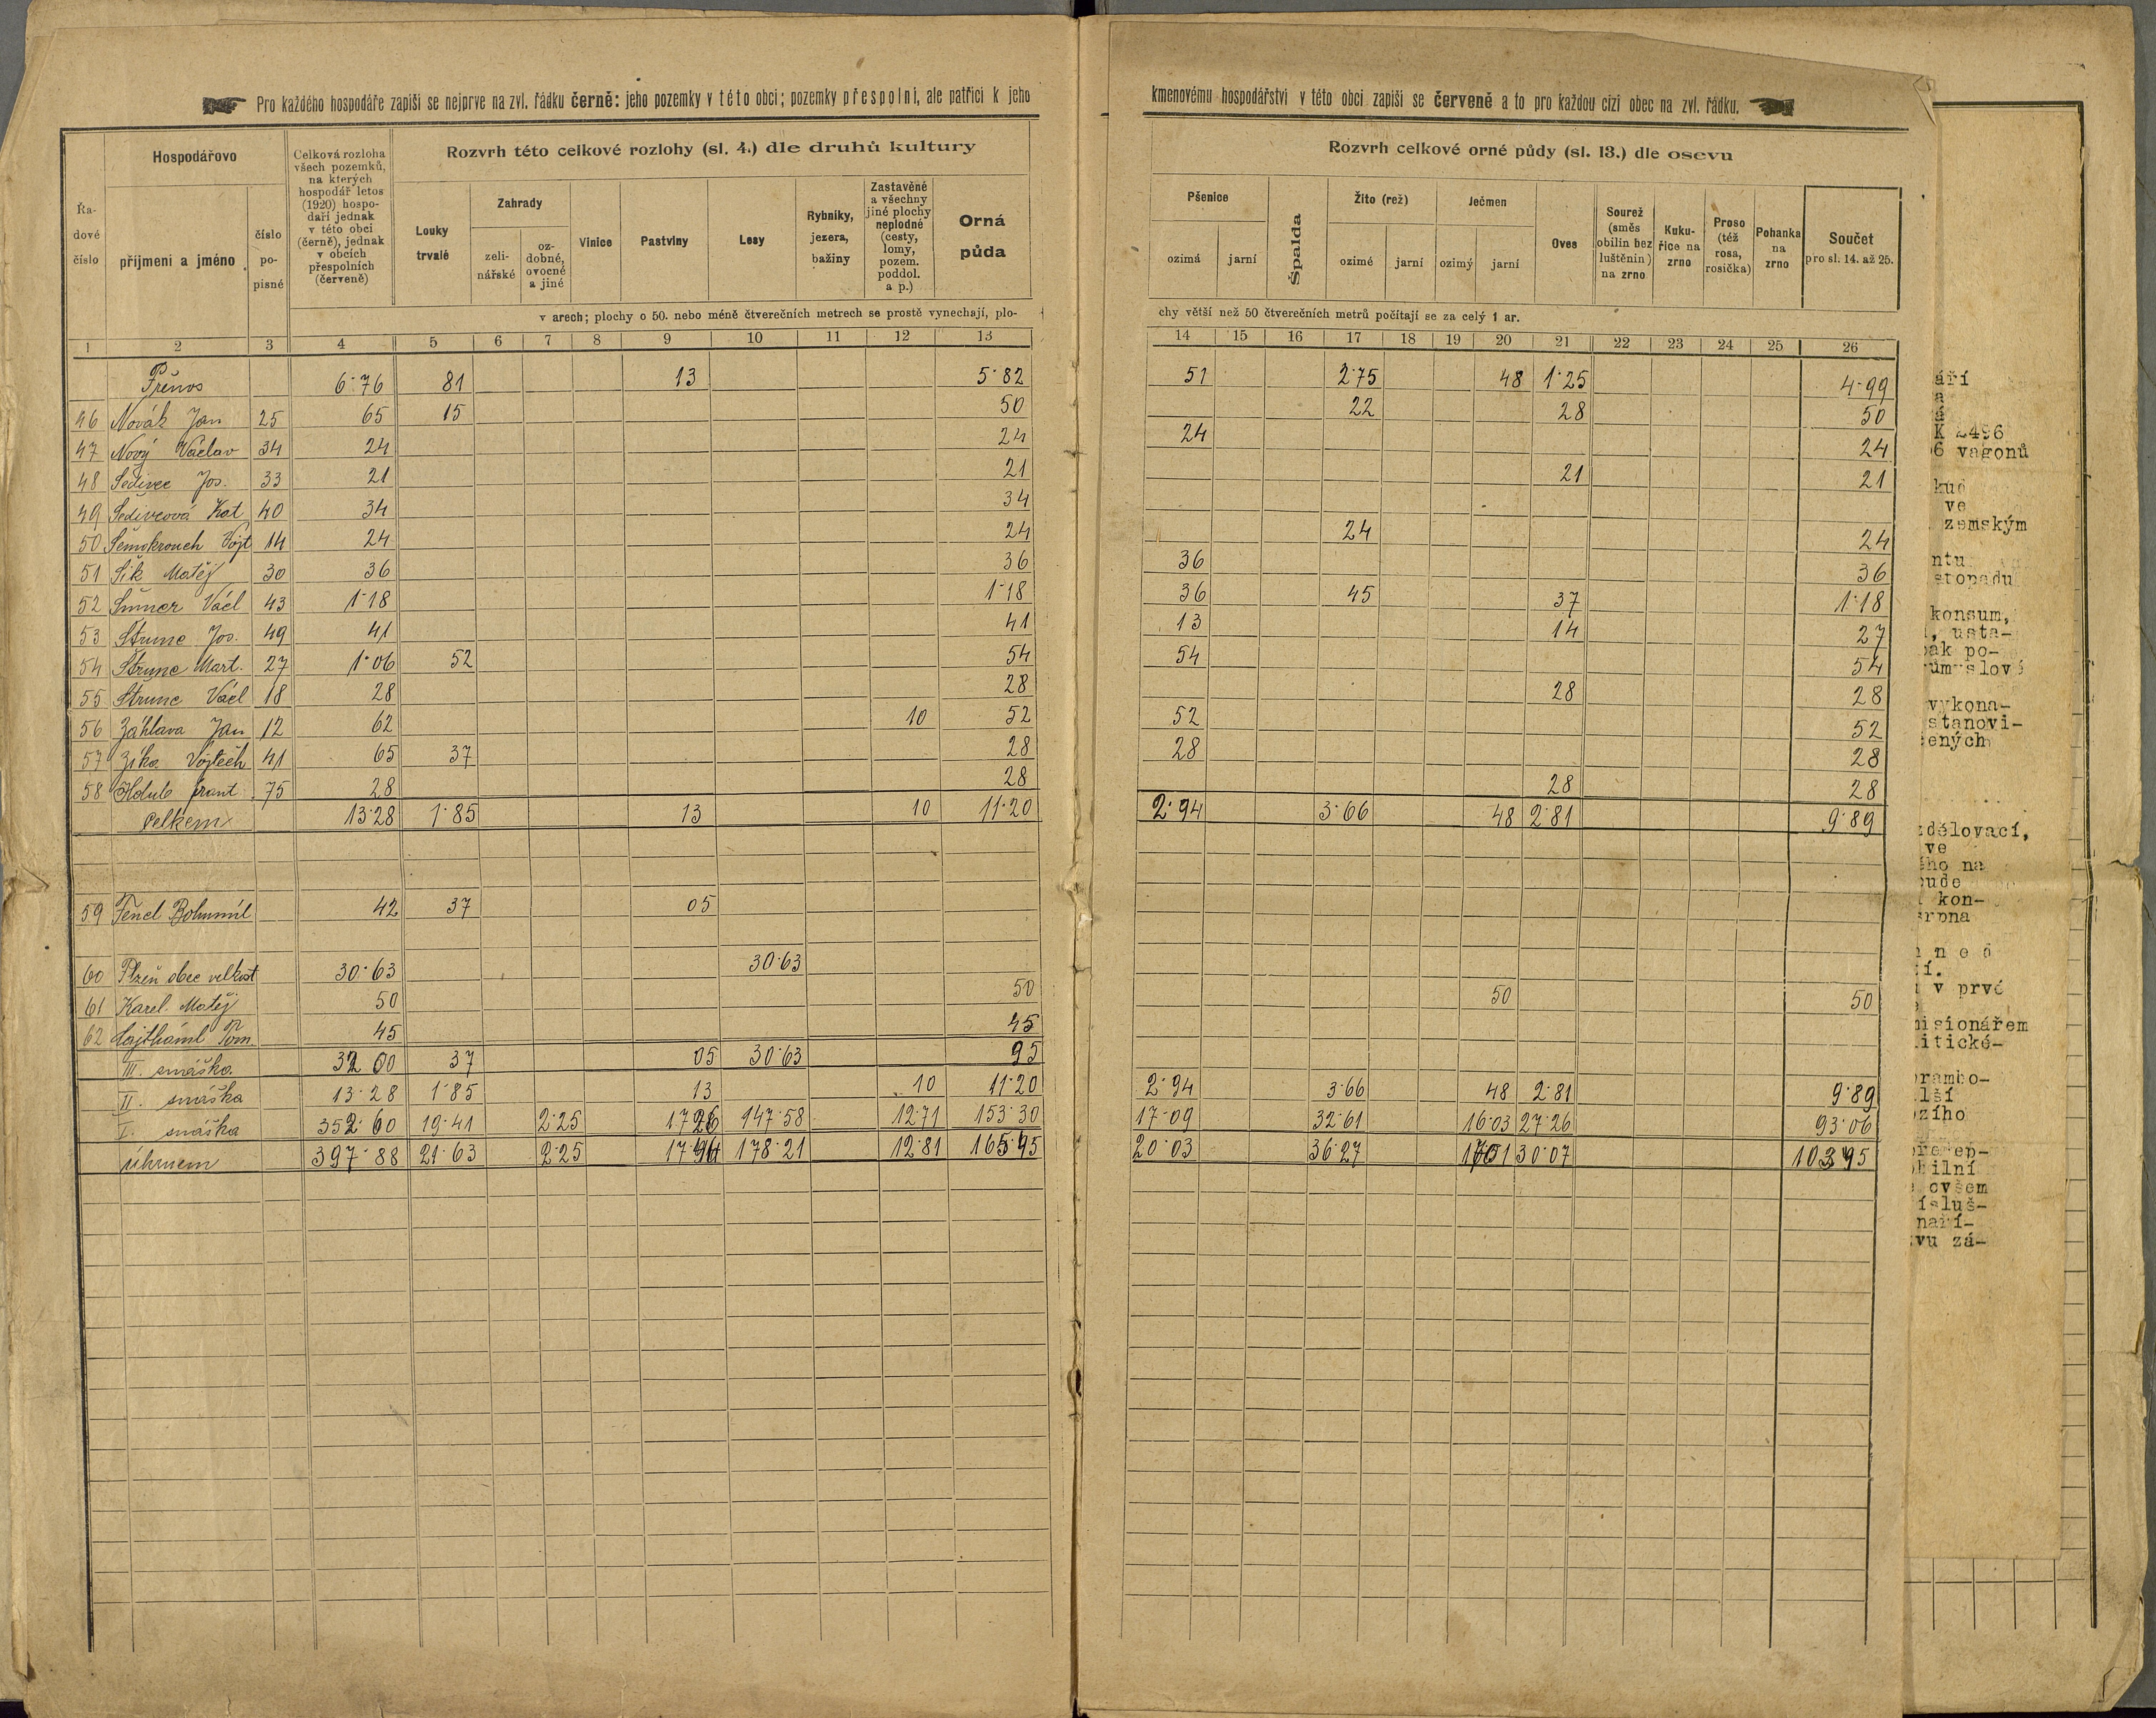 Pro každého hospodáře zapíší se nejprve na zvl. řádku černě: jeho pozemky v této obci; pozemky přespolní, ale patřící k jeho
kmenovému hospodářství v této obci zapíší se červeně a to pro každou cizí obec na zvl. řádku.
Řadové číslo
Hospodářovo
příjmení a jméno
číslo popisné
Celková rozloha
všech pozemků,
na kterých
hospodář letos
(1920) hospo-
daří jednak
v této obci
(černě), jednak
v obcích
přespolních
(červeně)
Rozvrh této celkové rozlohy (sl. 4.) dle druhů kultury
Louky trvalé
Zahrady
zeli-
nářské
oz-
dobné,
ovocné
a jiné
Vinice
Pastviny
Lesy
Rybníky,
jezera,
bažiny
Zastavěné
a všechny
jiné plochy
neplodné
(cesty,
lomy,
pozem.
poddol.
a p.)
Orná půda
v arech; plochy o 50. nebo méně čtverečních metrech se prostě vynechají, plo-
Rozvrh celkové orné půdy (sl. 13.) dle osevu
Pšenice
ozimá
jarní
Špalda
Žito (rež)
ozimé
jarní
Ječmen
ozimý
jarní
Oves
Sourež
(směs
obilin bez
luštěnin)
na zrno
Kuku-
řice na
zrno
Proso
(též
rosa,
rosička)
Pohanka
na
zrno
Součet
pro sl. 14. až 25.
chy větší než 50 čtverečních metrů počítají se za celý 1 ar.
1 2 3 4 5 6 7 8 9 10 11 12 13 14 15 16 17 18 19 20 21 22 23 24 25 26
Přenos 6·76 81 13 5·82 51 2·75 48 1·25 4·99
46 Novák Jan 25 65 15 50 22 28 50
47 Nový Václav 34 24 24 24 24
48 Šedivec Jos. 33 21 21 21 21
49 Šedivcová Kat 40 34 34
50 Šemokrouch Vojt 14 24 24 24 24
51 Šik Matěj 30 36 36 36 36
52 Václ 43 1·18 1·18 36 45 37 1·18
53 Štrunc Jos. 49 41 41 13 14 27
54 Štrunc Mart. 27 1·06 52 54 54 54
55 Štrunc Václ 18 28 28 28 28
56 Záhlava Jan 12 62 10 52 52 52
57 Zíka Vojtěch 41 65 37 28 28 28
58 Holub frant 75 28 28 28 28
Celkem 13·28 1·85 13 10 11·20 2·94 3·66 48 2·81 9·89
59 Fencl Bohumil 42 37 05
60 Plzeň obec velkost 30·63 30·63
61 Karel Matěj 50 50 50 50
62 45 45
III. snáška 32 00 37 05 30·63 95
II. snáška 13·28 1·85 13 10 11·20 2·94 3·66 48 2·81 9·89
I. snáška 352·60 19·41 2·25 1726 147·58 12·71 153·30 17·09 32·61 16·03 27·26 93·06
Úhrnem 397·88 21·63 2·25 178·21 12·81 165·95 20·03 36·27 30·07
áří
a
á
K 2496
06 vagonů
kud
ve
zemským
ntu
stopadu
konsum,
, usta-
pak po-
růmyslové
vykona-
stanovi-
ených
zdělovací,
ve
ého na
bude
kon-
srpna
n e d
í.
v prvé
misionářem
litické-
brambo-
lší
ozího
bilní
ovšem
ísluš-
naří-
vu zá-